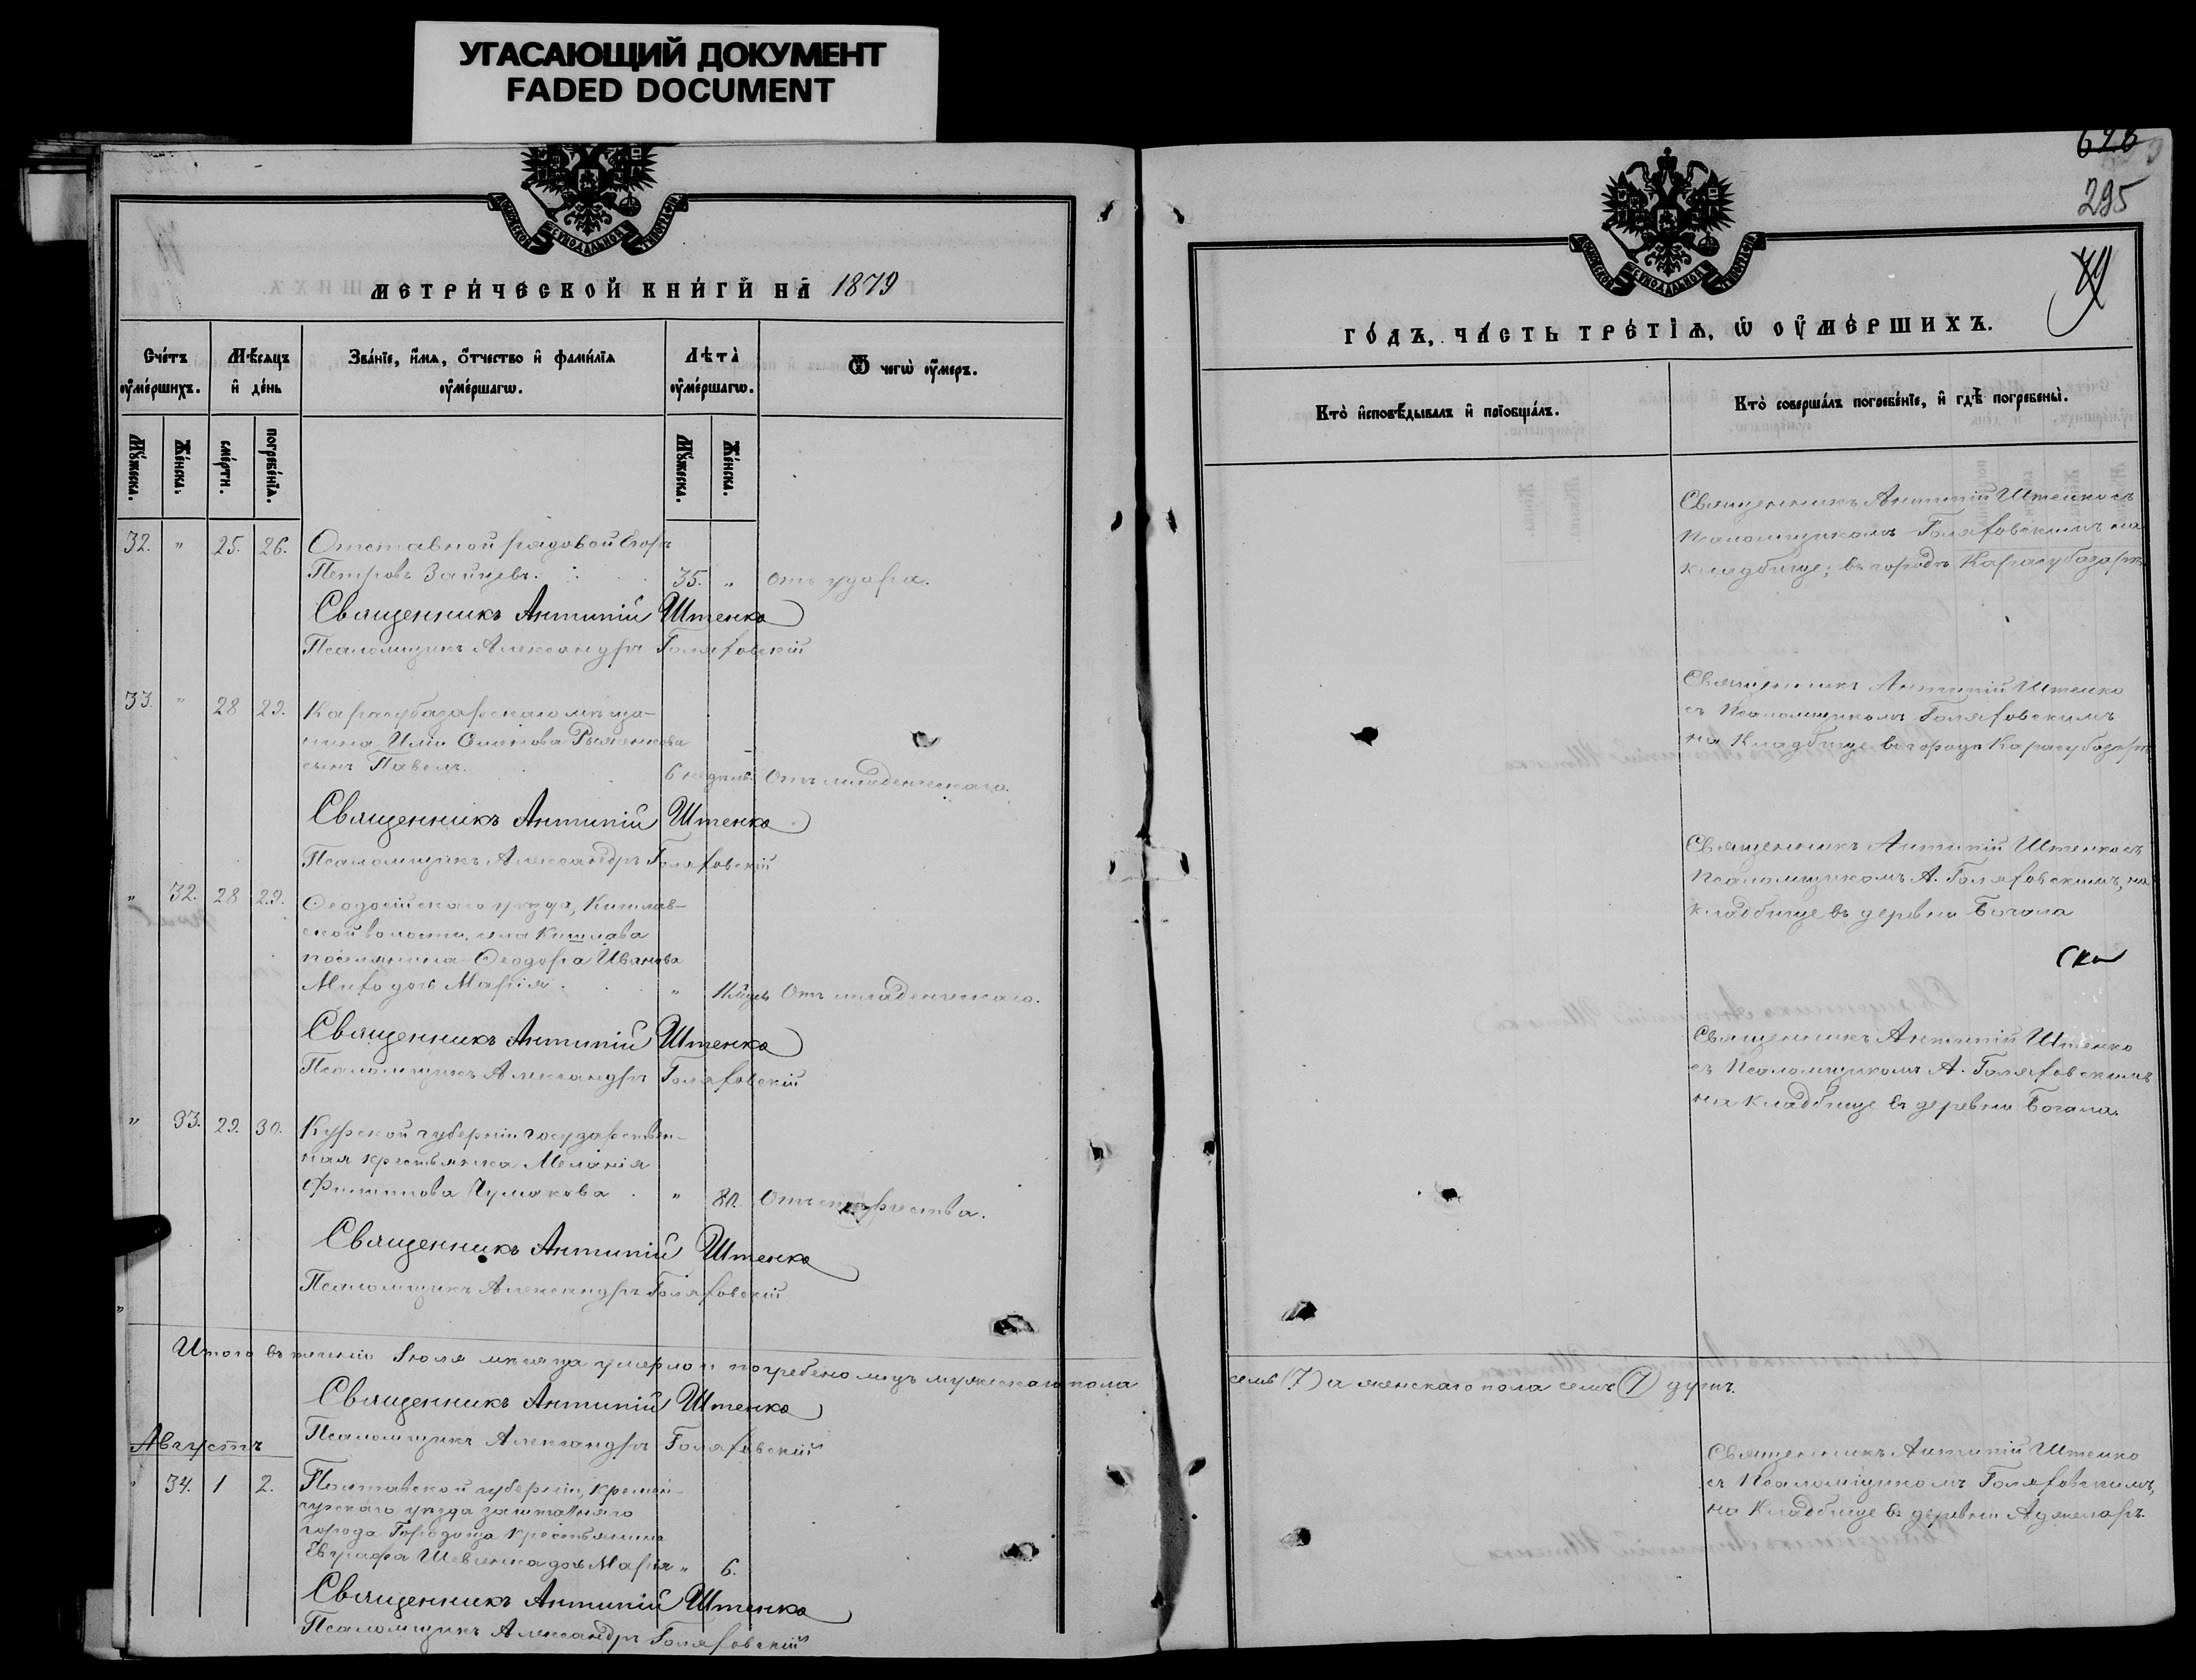 УГАСАЮЩИЙ ДОКУМЕНТ
FADED DOCUMENT
МЕТРИЧЕСКОЙ КНИГИ НА 1879
Счетъ умершихъ.
Мѣсяцъ и день
Званіе, имя, отчество и фамилія умершагѡ.
Лѣта умершагѡ.
Ѿ чегѡ умеръ.
Мужеска.
Женска.
смерти.
погребенія.
Мужеска.
Женска.
32. " 25. 26. Отставной рядовой Егоръ
Петровъ Зайцевъ. 35. " Отъ удара.
Священникъ Антипій Штенко
Псаломщикъ Александръ Голяховскій
33. " 28 29. Карасубазарскаго мѣща-
нина Иліи
сынъ Павелъ. 6 недѣль. Отъ младенческаго.
Священникъ Антипій Штенко
Псаломщикъ Александръ Голяховскій
" 32. 28 29. Ѳеодосійскаго уѣзда, Кишлав-
ской волости, села Кишлава
поселянина Ѳеодора Иванова
дочь Марія. " Отъ младенческаго.
Священникъ Антипій Штенко
Псаломщикъ Александръ Голяховскій
" 33. 29. 30. Курской губерніи государствен-
ная крестьянка Меланія
Филиппова Чумакова. " 80. Отъ старчества.
Священникъ Антипій Штенко
Псаломщикъ Александръ Голяховскій
Итого въ теченіи Іюля мѣсяца умерло и погребено лицъ мужескаго пола
Священникъ Антипій Штенко
Псаломщикъ Александръ Голяховскій
Августъ
" 34. 1 2. Полтавской губерніи, Кремен-
чугскаго уѣзда заштатнаго
города крестьянина
Евграфа Шевченка дочь Марія " 6.
Священникъ Антипій Штенко
Псаломщикъ Александръ Голяховскій
295
ГОДЪ, ЧАСТЬ ТРЕТІЯ, Ѡ УМЕРШИХЪ.
Кто исповѣдывалъ и пріобщалъ.
Кто совершалъ погребеніе, и гдѣ погребены.
Священникъ Антипій Штенко съ
Псаломщикомъ Голяховскимъ на
кладбище; въ городѣ Карасубазарѣ
Священникъ Антипій Штенко
съ Псаломщикомъ Голяховскимъ
на Кладбище въ городѣ Карасубазарѣ
Священникъ Антипій Штенко съ
Псаломщикомъ А. Голяховскимъ, на
кладбище въ деревни Бочала
Священникъ Антипій Штенко
съ Псаломщикомъ А. Голяховскимъ
на кладбище въ деревни Бочала.
семь (7) а женскаго пола семь (7) душъ.
Священникъ Антипій Штенко
съ Псаломщикомъ Голяховскимъ,
на Кладбище въ деревни